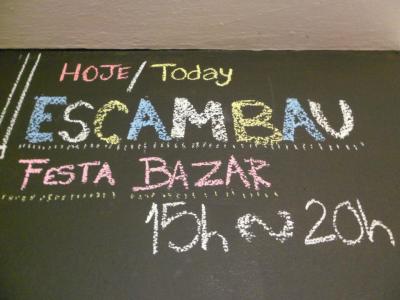 HOJE/Today
ESCAMBAU
FESTA BAZAR
15h~20h